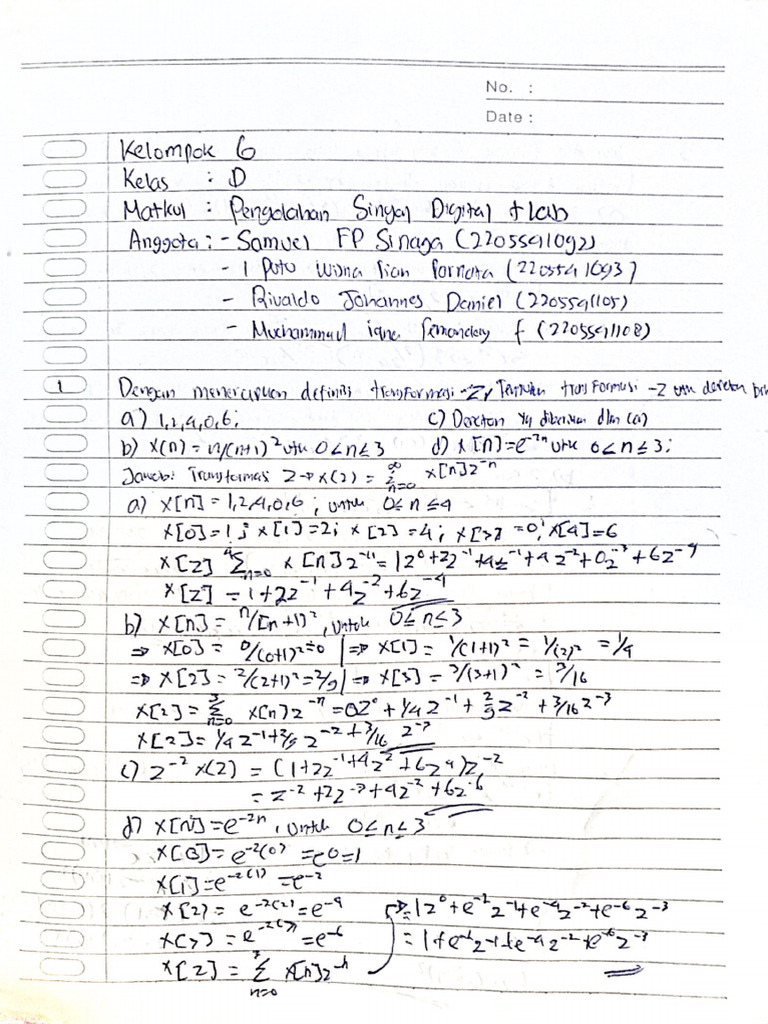 No. :
Date :
Kelompok 6
Kelas : D
Matkul : Pengolahan Sinyal Digital + Lab
Anggota : - Samuel FP Sinaga (2205541092)
- I Putu Wisna (2205541093)
- Rivaldo Johannes Daniel (2205541105)
- Muchammad F (2205541108)
1 Dengan menerapkan definisi transformasi -Z, Tentukan transformasi -Z utk deretan
a) 1,2,4,0,6; c) Deretan yg diberikan dlm (a)
b) x(n) = n/(n+1)² utk 0≤n≤3 d) x[n]=e^-2n utk 0≤n≤3;
Jawab: Transformasi Z → X(z) = ∞Σn=0 x[n]z^-n
a) x[n] = 1,2,4,0,6 ; untuk 0≤n≤4
x[0]=1; x[1]=2; x[2]=4; x[3]=0; x[4]=6
X[z] 4Σn=0 x[n]z^-n = 1z^0+2z^-1+4z^-1+4z^-2+0z^-3+6z^-4
X[z] = 1+2z^-1+4z^-2+6z^-4
b) x[n] = n/[n+1)², untuk 0≤n≤3
⇒ x[0] = 0/(0+1)²=0 | ⇒ x[1] = 1/(1+1)² = 1/(2)² = 1/4
⇒ x[2] = 2/(2+1)²=2/9 | ⇒ x[3] = 3/(3+1)² = 3/16
X[z] = 3Σn=0 x[n]z^-n = 0z^0+1/4z^-1+2/9z^-2+3/16z^-3
X[z] = 1/4z^-1+2/9z^-2+3/16z^-3
c) z^-2 X(z) = (1+2z^-1+4z^2+6z^4)z^-2
= z^-2+2z^-3+4z^-2+6z^-6
d) x[n]=e^-2n, untuk 0≤n≤3
x[0]=e^-2(0)=e^0=1
x[1]=e^-2(1)=e^-2
x[2]=e^-2(2)=e^-4 ⇒=1z^0+e^-2z^-1+e^-4z^-2+e^-6z^-3
x[3]=e^-2(3)=e^-6 =1+e^-2z^-1+e^-4z^-2+e^-6z^-3
X[z] = 3Σn=0 x[n]z^-n